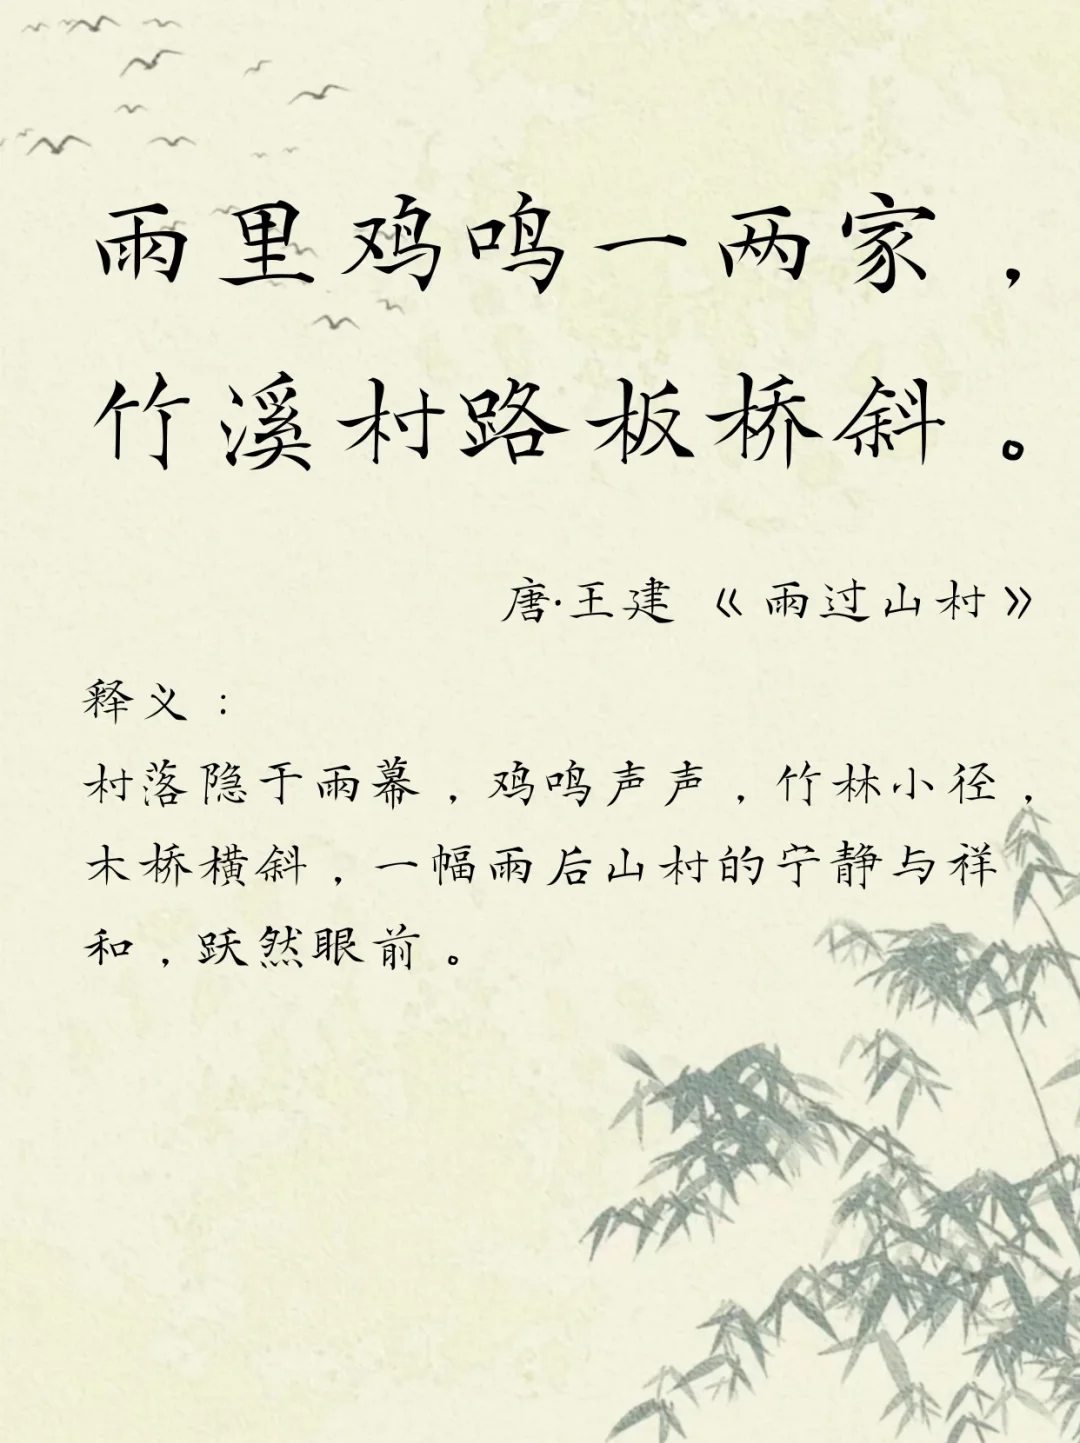 雨里鸡鸣一两家，
竹溪村路板桥斜。
唐·王建《雨过山村》
释义：
村落隐于雨幕，鸡鸣声声，竹林小径，
木桥横斜，一幅雨后山村的宁静与祥
和，跃然眼前。